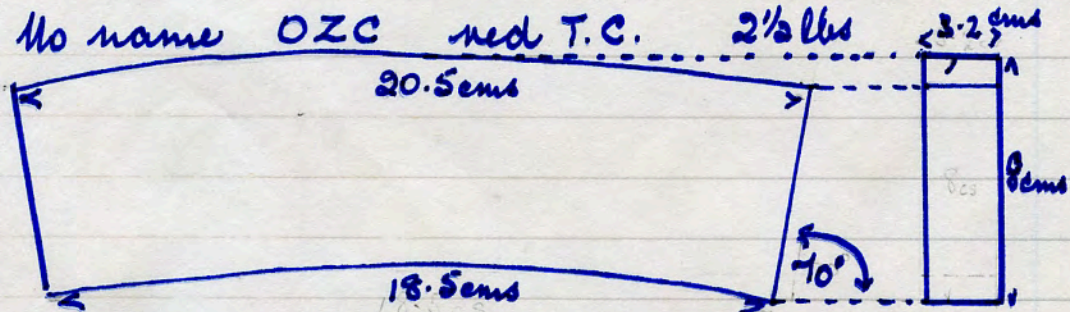 No name OZC red T.C. 2½ lbs
3.2 cms
20.5 cms
8 cms
8 cs
70°
18.5 cms